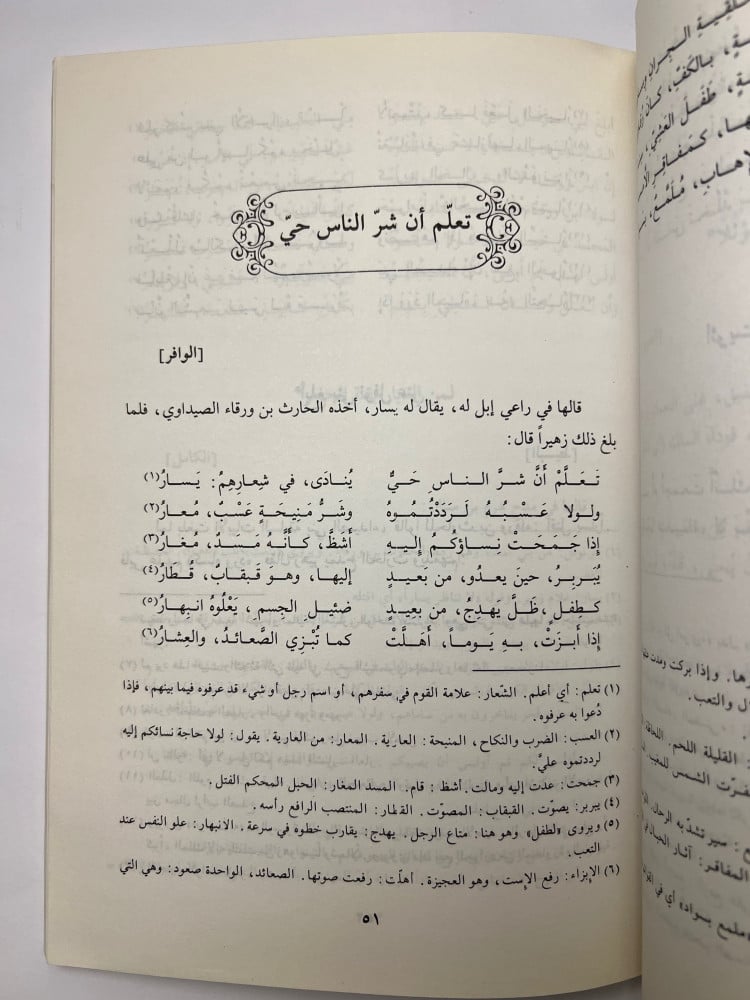 تعلّم أن شرّ الناس حيّ
[الوافر]
قالها في راعي إبل له، يقال له يسار، أخذه الحارث بن ورقاء الصيداوي، فلما
بلغ ذلك زهيراً قال:
تَعَلَّمْ أَنَّ شرَّ النـاسِ حَيٌّ يُنادَى، في شِعارِهِمُ: يَسارُ(١)
ولولا عَسْبُهُ لَرَدَدْتُمُوهُ وشَرُّ مَنِيحَةٍ عَسْبٌ، مُعارُ(٢)
إذا جَمَحَتْ نِساؤكُمُ إليهِ أشظَّ، كأنَّهُ مَسَدٌ، مُغارُ(٣)
يُبَرْبِرُ، حينَ يعدُو، من بعيدٍ إليها، وهوَ قَبقابٌ، قُطَارُ(٤)
كطِفلٍ، ظَلَّ يَهدِجُ، من بعِيدٍ ضئيلِ الجِسمِ، يَعْلُوهُ انبِهارُ(٥)
إذا أبزَتْ، بهِ يَوماً، أهَلَّتْ كما تُبْزِي الصَّعائدُ، والعِشارُ(٦)
(١) تعلم: أي أعلم. الشّعار: علامة القوم في سفرهم، أو اسم رجل أو شيء قد عرفوه فيما بينهم، فإذا
دُعوا به عرفوه.
(٢) العسب: الضرب والنكاح، المنيحة: العارية. المعار: من العارية. يقول: لولا حاجة نسائكم إليه
لرددتموه عليَّ.
(٣) جمحت: عدت إليه ومالت. أشظ: قام. المسد المغار: الحبل المحكم الفتل.
(٤) يبربر: يصوّت. القبقاب: المصوّت. القطار: المنتصب الرافع رأسه.
(٥) ويروى «لطفل» وهو هنا: متاع الرجل. يهدج: يقارب خطوه في سرعة. الانبهار: علو النفس عند
التعب.
(٦) الإبزاء: رفع الإست، وهو العجيزة. أهلّت: رفعت صوتها. الصعائد، الواحدة صعود: وهي التي
٥١